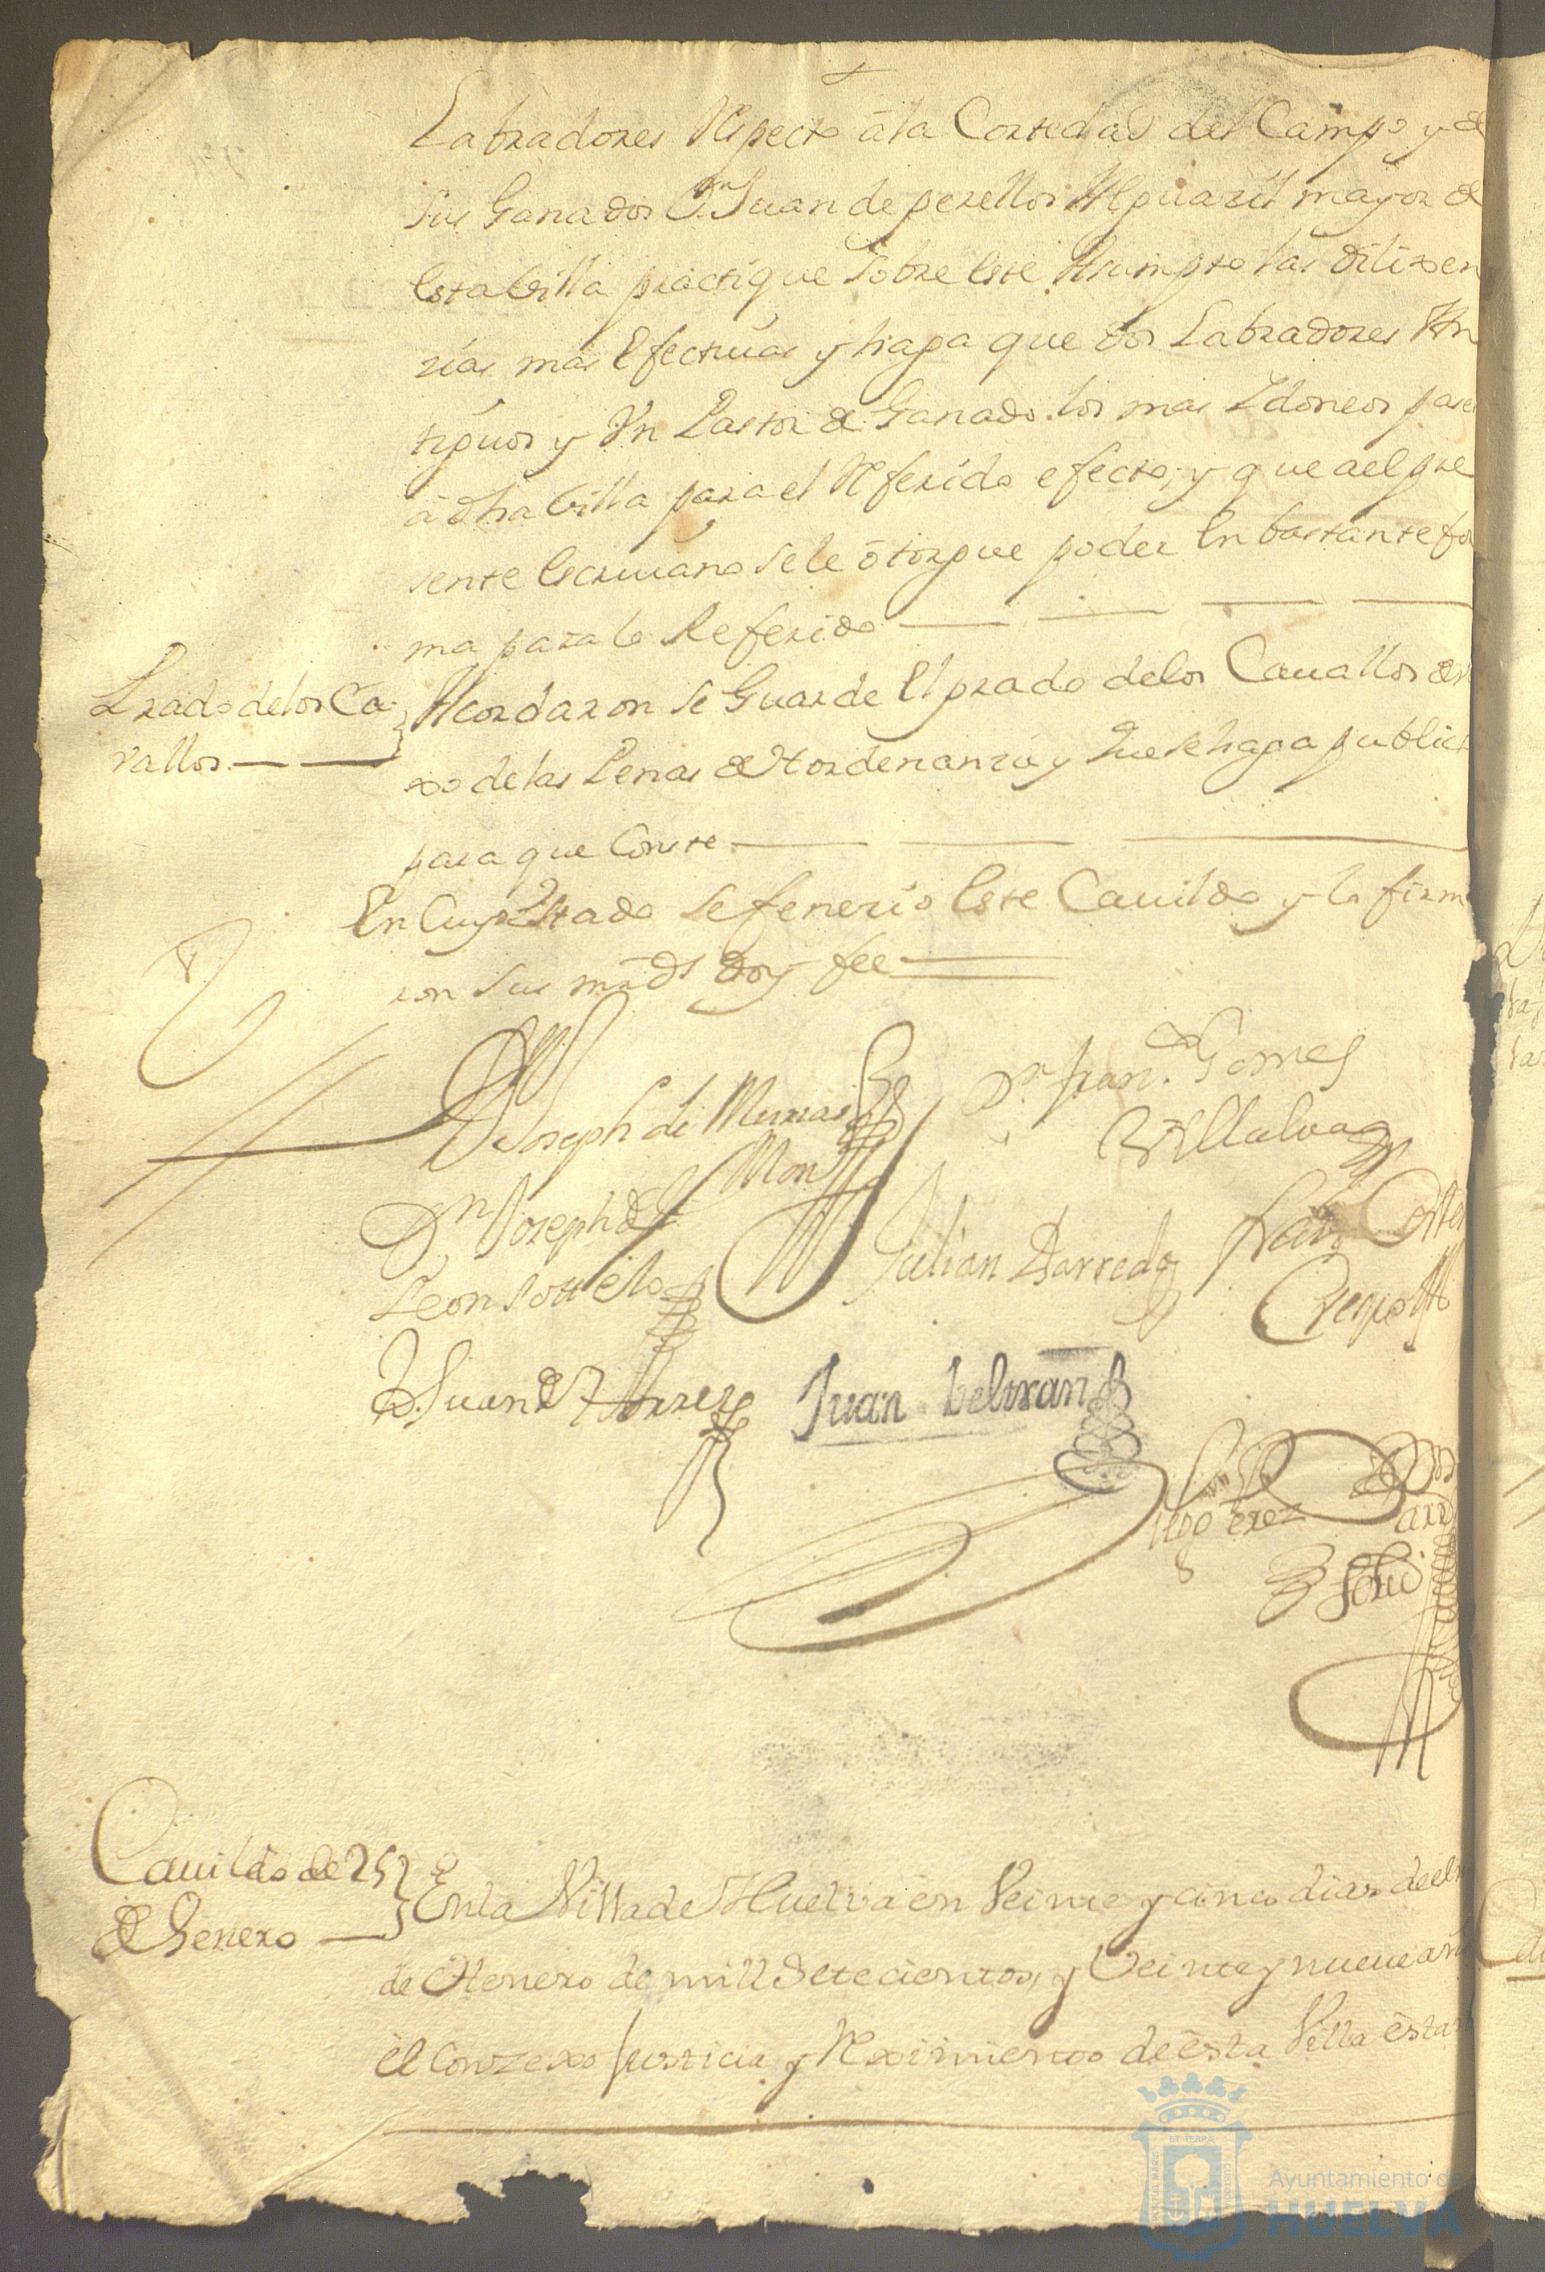 Labradores Respecto âla Cortedad del Campo y de
sus Ganados Dn Juan de perellos Alguazil mayor de
esta Villa practique sobre este Asumpto las dilixen
zias mas efectivas y haga que dos Labradores An
tiguos y Un Pastor de Ganado los mas Idoneos pasen
â dha Villa para el Referido efecto, y que ael pre
sente Escrivano se le ôtorgue poder en bastante for
ma para lo Referido
Prado de los Ca
vallos
Acordaron se Guarde El prado de los Cauallos de
xo de las Penas de Hordenanza y que se haga public
para que Conste
En Cuyo estado se fenecio Este Cauildo y lo firm
ron sus mrds doy fee
Joseph de
Dn Fran. Gomes
Villalva
Dn Joseph de
Leon Sottelo
Julian Barreda
Crespo
D. Juan de Torres
Juan beltran
Diego Perez
Cauildo de 25
de Henero
En la Villa de Huelva en Veinte y cinco dias de el
de Henero de mill Setecientos, y Veinte y nueve añ
el Conzexo Justicia y Reximiento de esta Villa estan
Ayuntamiento de
HUELVA